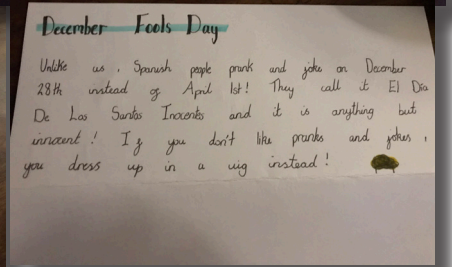 December Fools Day
Unlike us, Spanish people prank and joke on December
28th instead of April 1st! They call it El Dia
De Los Santos Inocentes and it is anything but
innocent! If you don't like pranks and jokes,
you dress up in a wig instead!